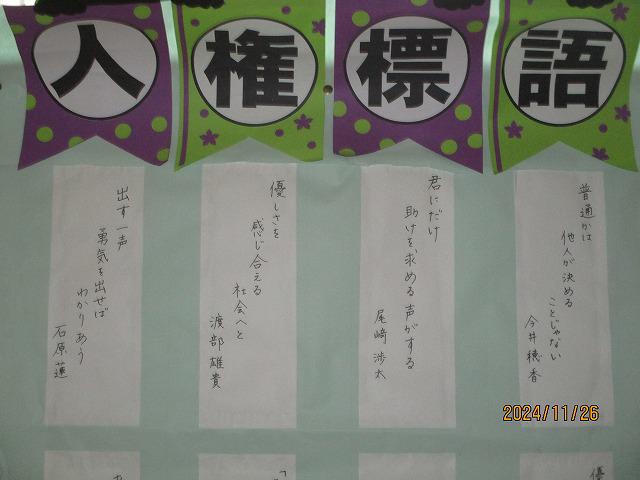 人権標語
普通かは
他人が決める
ことじゃない
今井穂香
君にだけ
助けを求める声がする
尾崎渉太
優しさを
感じ合える
社会へと
渡部雄貴
出す一声
勇気を出せば
わかりあう
石原蓮
2024/11/26